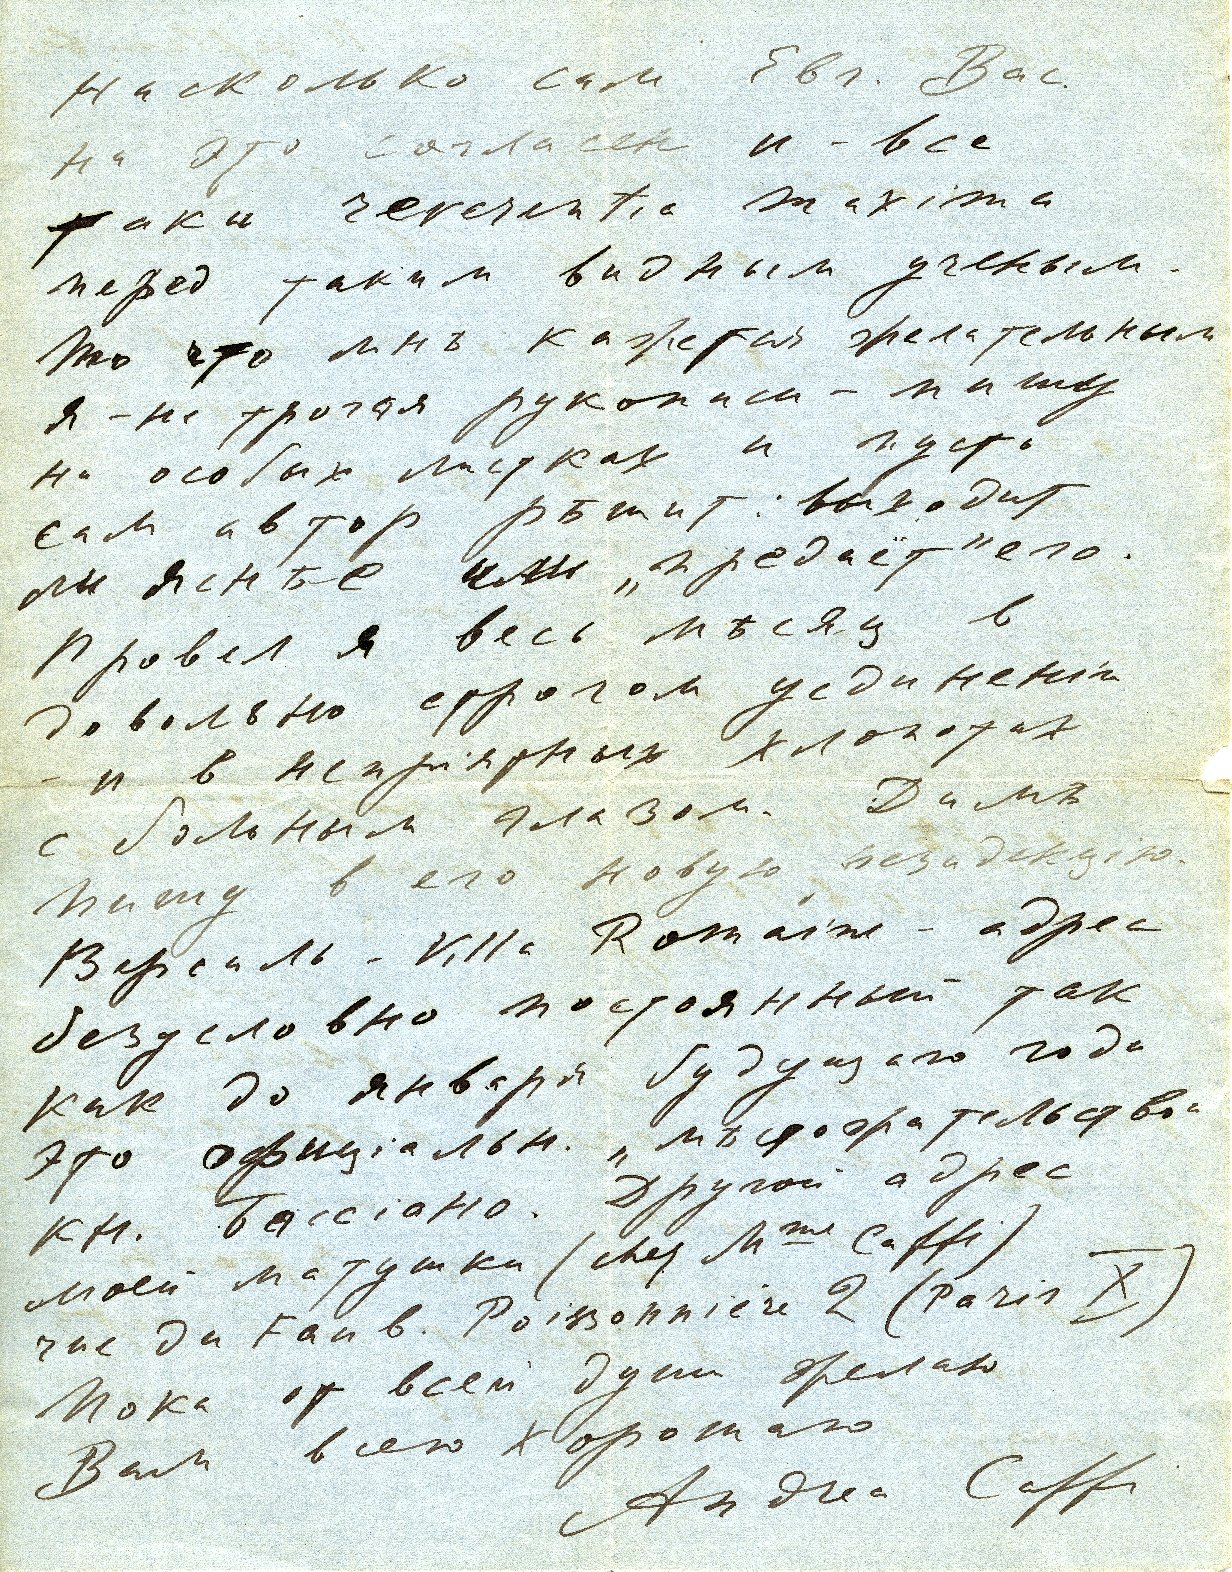 насколько сам Евг. Вас.
на это согласен и - все
таки reverentia maxima
перед таким видным ученым.
То что мнѣ кажется желательным
я - не трогая рукописи - пишу
на особых листках и пусть
сам автор рѣшит: выходит
ли яснѣе или „предаёт" его.
Провел я весь мѣсяц в
довольно строгом уединеніи
- и в непріятных хлопотах
с больным глазом. Димѣ
пишу в его новую резиденцію.
Версаль - Villa Romaine - адрес
безусловно постоянный так
как до января будущаго года
это офиціальн. „мѣстожительство"
кн. Бассіано. Другой адрес
моей матушки (chez Mme Caffi)
rue du Faub. Poissonnière 2 (Paris X)
Пока от всей души желаю
Вам всего хорошаго
Andrea Caffi